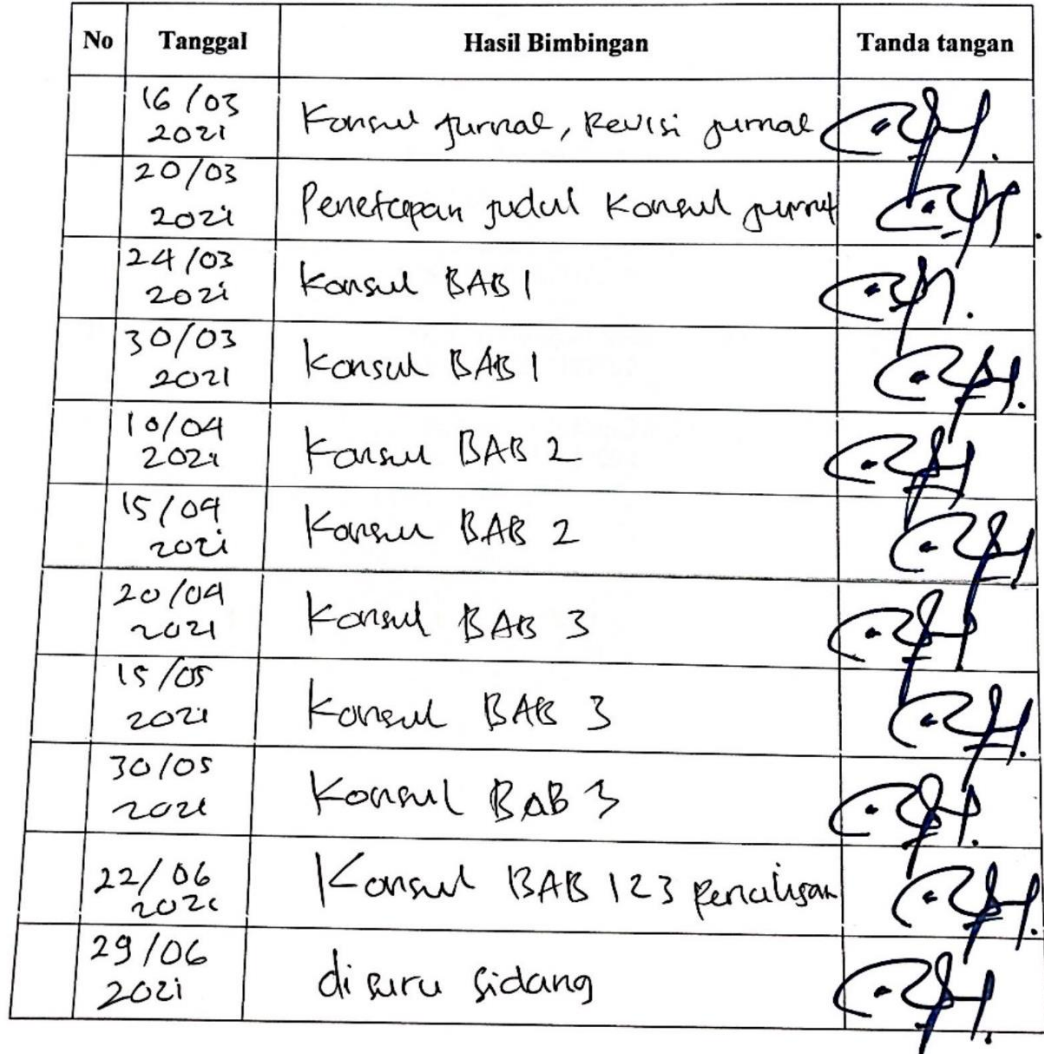 No Tanggal Hasil Bimbingan Tanda tangan
16/03
2021
Konsul jurnal, Revisi jurnal
20/03
2021
Penetapan judul Konsul jurnal
24/03
2021
Konsul BAB 1
30/03
2021
Konsul BAB 1
10/04
2021
Konsul BAB 2
15/04
2021
Konsul BAB 2
20/04
2021
Konsul BAB 3
15/05
2021
Konsul BAB 3
30/05
2021
Konsul BAB 3
22/06
2021
Konsul BAB 123 penulisan
29/06
2021
di suru sidang